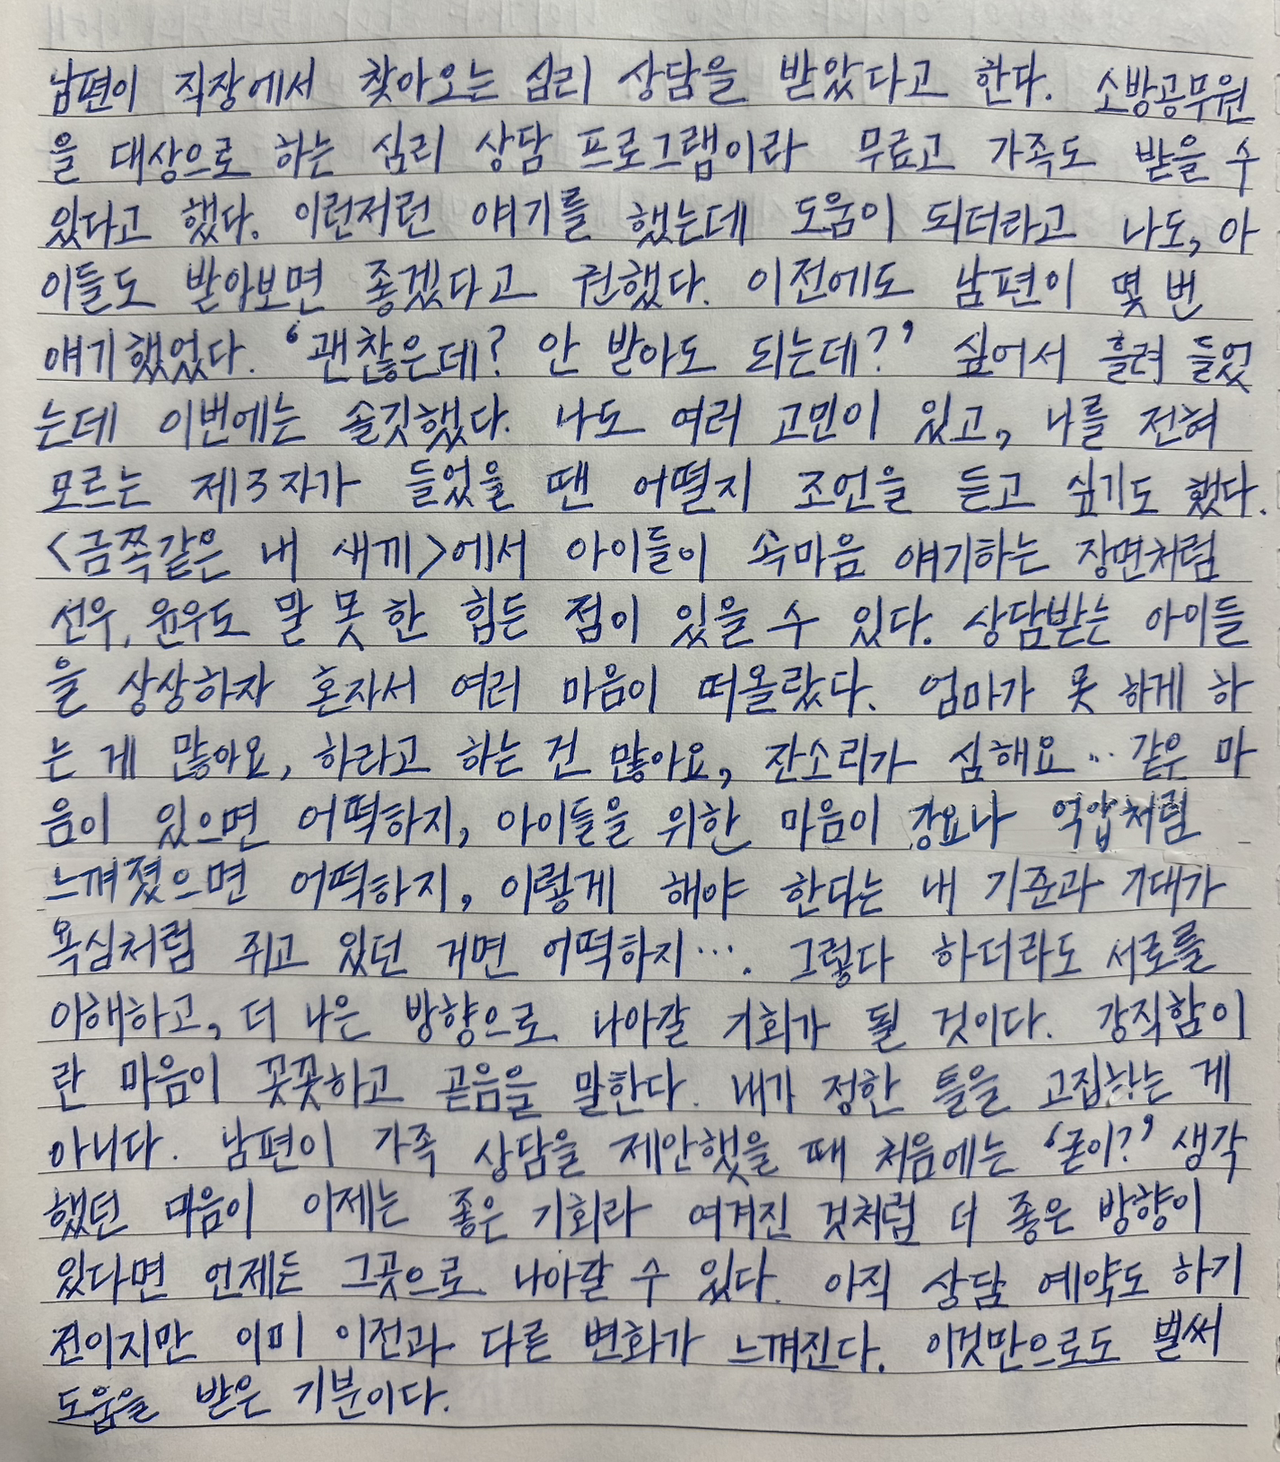 남편이 직장에서 찾아오는 심리 상담을 받았다고 한다. 소방공무원
을 대상으로 하는 심리 상담 프로그램이라 무료고 가족도 받을 수
있다고 했다. 이런저런 얘기를 했는데 도움이 되더라고 나도, 아
이들도 받아보면 좋겠다고 권했다. 이전에도 남편이 몇 번
얘기했었다. ‘괜찮은데? 안 받아도 되는데?’ 싶어서 흘려 들었
는데 이번에는 솔깃했다. 나도 여러 고민이 있고, 나를 전혀
모르는 제3자가 들었을 땐 어떨지 조언을 듣고 싶기도 했다.
<금쪽같은 내 새끼>에서 아이들이 속마음 얘기하는 장면처럼
선우, 윤우도 말 못 한 힘든 점이 있을 수 있다. 상담받는 아이들
을 상상하자 혼자서 여러 마음이 떠올랐다. 엄마가 못 하게 하
는 게 많아요, 하라고 하는 건 많아요, 잔소리가 심해요… 같은 마
음이 있으면 어떡하지, 아이들을 위한 마음이 강요나 억압처럼
느껴졌으면 어떡하지, 이렇게 해야 한다는 내 기준과 기대가
욕심처럼 쥐고 있던 거면 어떡하지…. 그렇다 하더라도 서로를
이해하고, 더 나은 방향으로 나아갈 기회가 될 것이다. 강직함이
란 마음이 꼿꼿하고 곧음을 말한다. 내가 정한 틀을 고집하는 게
아니다. 남편이 가족 상담을 제안했을 때 처음에는 ‘굳이?’ 생각
했던 마음이 이제는 좋은 기회라 여겨진 것처럼 더 좋은 방향이
있다면 언제든 그곳으로 나아갈 수 있다. 아직 상담 예약도 하기
전이지만 이미 이전과 다른 변화가 느껴진다. 이것만으로도 벌써
도움을 받은 기분이다.